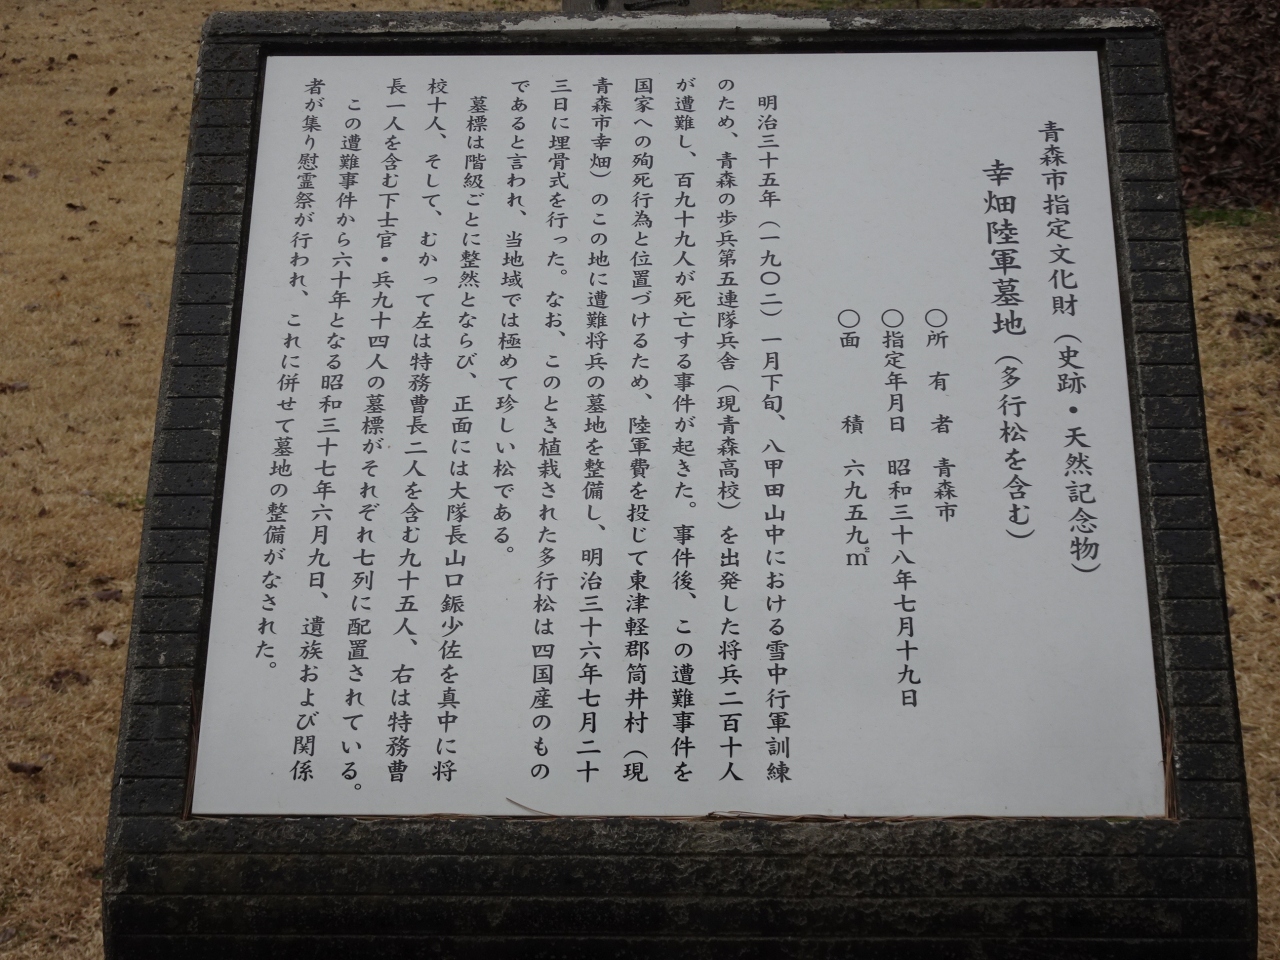 青森市指定文化財（史跡・天然記念物）
幸畑陸軍墓地（多行松を含む）
〇所有者　青森市
〇指定年月日　昭和三十八年七月十九日
〇面積　六九五九㎡
明治三十五年（一九〇二）一月下旬、八甲田山中における雪中行軍訓練
のため、青森の歩兵第五連隊兵舎（現青森高校）を出発した将兵二百十人
が遭難し、百九十九人が死亡する事件が起きた。事件後、この遭難事件を
国家への殉死行為と位置づけるため、陸軍費を投じて東津軽郡筒井村（現
青森市幸畑）のこの地に遭難将兵の墓地を整備し、明治三十六年七月二十
三日に埋骨式を行った。なお、このとき植栽された多行松は四国産のもの
であると言われ、当地域では極めて珍しい松である。
墓標は階級ごとに整然とならび、正面には大隊長山口鋠少佐を真中に将
校十人、そして、むかって左は特務曹長二人を含む九十五人、右は特務曹
長一人を含む下士官・兵九十四人の墓標がそれぞれ七列に配置されている。
この遭難事件から六十年となる昭和三十七年六月九日、遺族および関係
者が集り慰霊祭が行われ、これに併せて墓地の整備がなされた。